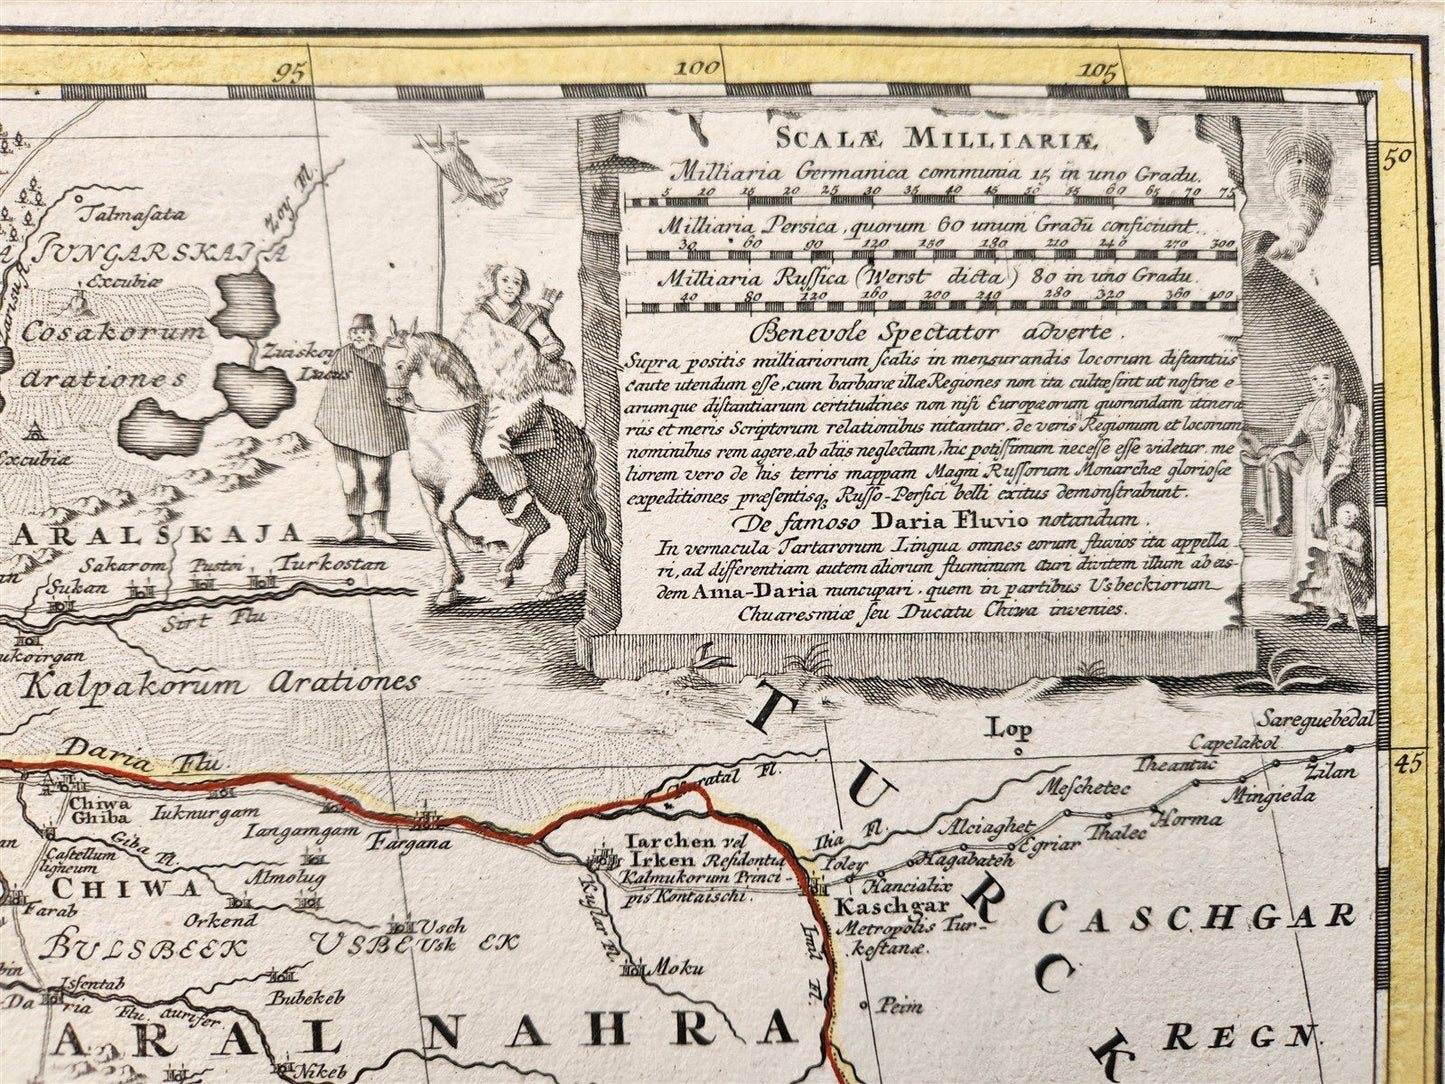 95
100
105
50
45
SCALÆ MILLIARIÆ
Milliaria Germanica communia 15 in uno Gradu.
5 10 15 20 25 30 35 40 45 50 55 60 65 70 75
Milliaria Persica, quorum 60 unum Gradū conficiunt.
30 60 90 120 150 180 210 240 270 300
Milliaria Russica (Werst dicta) 80 in uno Gradu.
40 80 120 160 200 240 280 320 360 400
Benevole Spectator adverte.
Supra positis milliariorum scalis in mensurandis locorum distantiis
caute utendum esse, cum barbaræ illæ Regiones non ita cultæ sint ut nostræ e-
arumque distantiarum certitudines non nisi Europæorum quorundam itinera
riis et meris Scriptorum relationibus nitantur, de veris Regionum et locorum
nominibus rem agere, ab aliis neglectam, hic potissimum necesse esse videtur. me
liorem vero de his terris mappam Magni Russorum Monarchæ gloriosæ
expeditiones præsentisq. Russo-Persici belli exitus demonstrabunt.
De famoso Daria Fluvio notandum.
In vernacula Tartarorum Lingua omnes eorum fluvios ita appella
ri, ad differentiam autem aliorum fluminum auri divitem illum ab eis-
dem Ama-Daria nuncupari, quem in partibus Usbeckiorum
Chuaresmiæ seu Ducatu Chiwa invenies.
Talmasata
JUNGARSKAJA
Zoy M.
Excubiæ
Cosakorum
Arationes
Zuiskoy
Lacus
Excubiæ
ARALSKAJA
Sakarom
Pustoi
Turkostan
Sukan
Sirt Flu.
ukoirgan
Kalpakorum Arationes
Daria Flu.
Chiwa
Ghiba
Iuknurgam
Iangamgam
Fargana
Castellum
ligneum
Giba Fl.
CHIWA
Almolug
Farab
Orkend
Usch
Usk
BULSBEEK
USBE EK
Issentab
Da ria Flu. aurifer
Bubekeb
Nikeb
ARAL NAHRA
Karatal Fl.
Iarchen vel
Irken Residentia
Kalmukorum Princi-
pis Kontaischi.
Kuglar Fl.
Moku
Lop
Sareguebedal
Capelakol
Theantac
Zilan
Mingieda
Meschetec
Horma
Thalec
Alciaghet
Egriar
Hagabateh
Ilia Fl.
Ioley
Hancialix
Kaschgar
Metropolis Tur-
kestanæ.
Peim
CASCHGAR
REGN.
TURCK